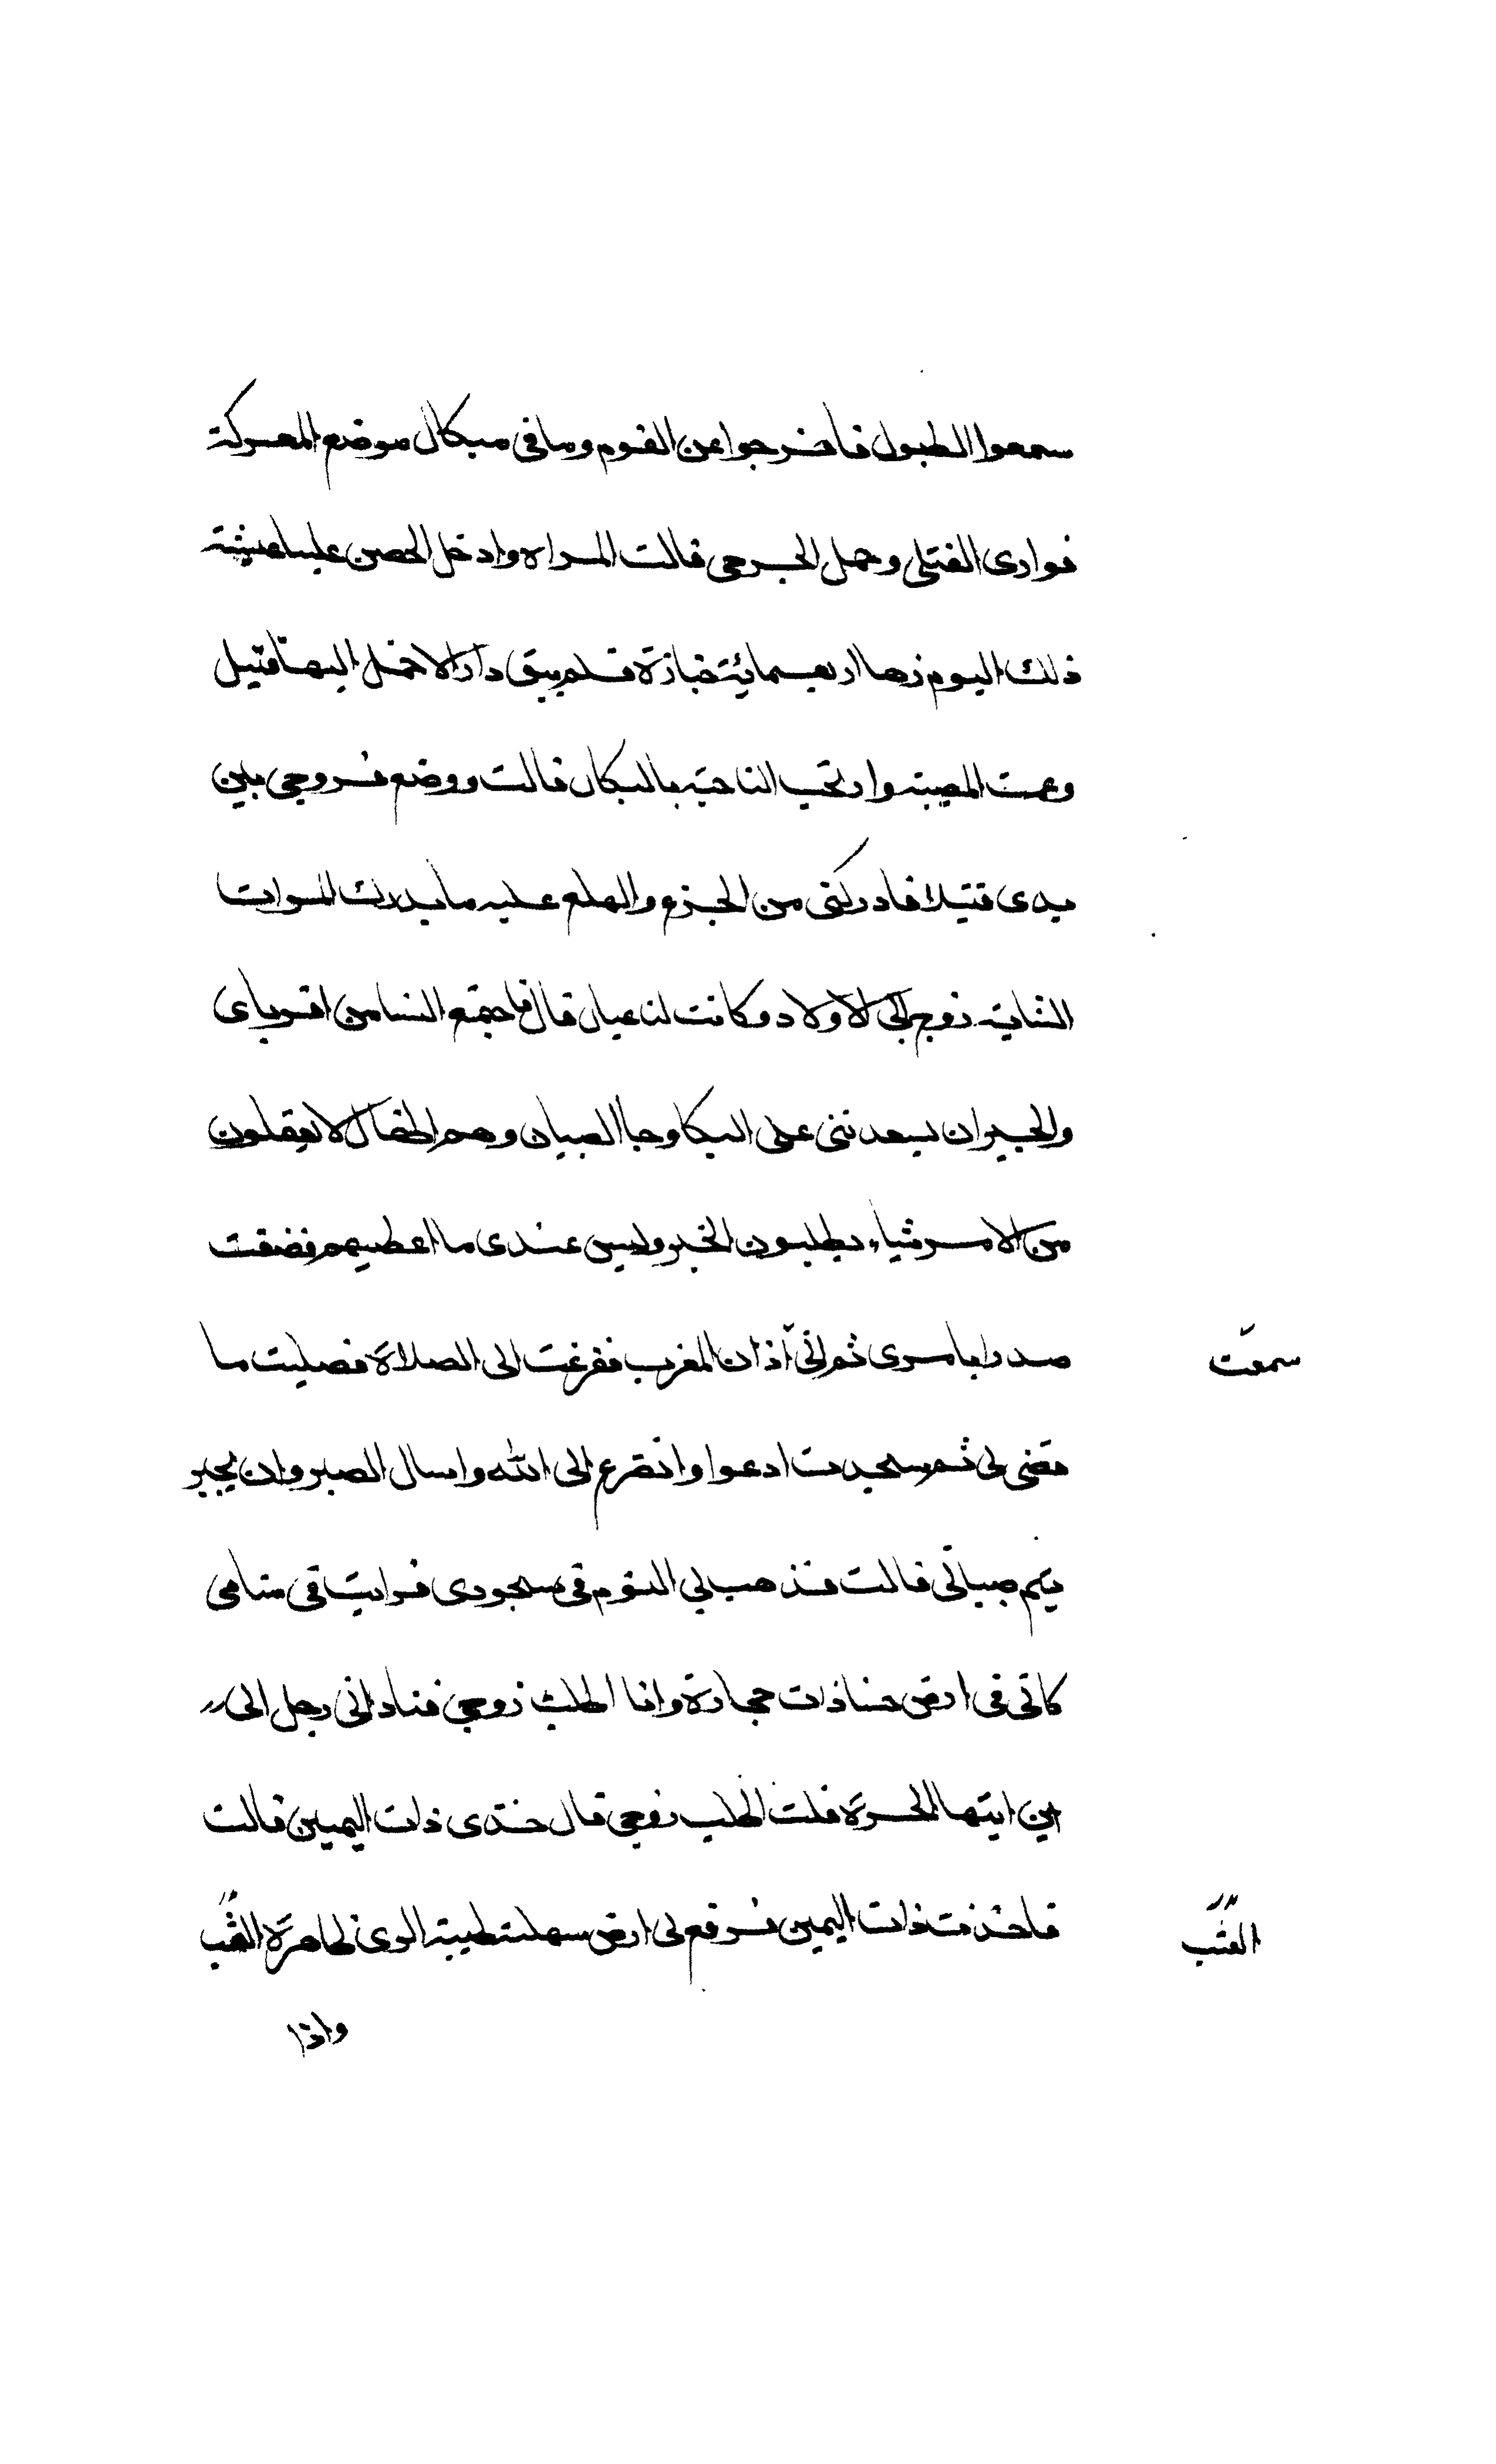 سمعوا الطبول فاخرجوا عن القوم وما فى ميكال موضع المعركة
فوادى القتلى وحمل الجرحى قالت المراه وادخل الحصن علينا عشية
ذلك اليوم زها اربعمائة خبازة فلم يبق دار الا حمل اليها قتيل
وعمت المصيبة وارتجت الناحية بالبكاء قالت ووضع زوجى بين
يدى قتيلا فادركنى من الجزع والهلع عليه ما يدرك النسوان
الشابة زوج الى الاولاد وكانت لنا عيال قال فاجتمع النسا من اقرباى
والجيران يسعدننى على البكا وجا الصبيان وهم اطفال لا يعقلون
من الامر شياء يطلبون الخبز وليس عندى ما اعطيهم فضقت
صدرا بامرى ثم انى آذان المغرب ففرغت الى الصلاة فصليت ما
سمعت
قضى لى ثم سجدت ادعوا واتضرع الى الله واسال الصبر وان يجبر
يتم صبيانى قالت فذهب بى النوم فى سجودى فرايت فى منامى
كانى فى ارض حسنا ذات حجارة وانا اطلب زوجى فنادانى رجل الى
اين ايتها الحرة قلت اطلب زوجى قال خذى ذات اليمين قالت
فاخذت ذات اليمين فرفع لى ارض سهلة طيبة الرى ظاهرة العشب
العشب
واذا